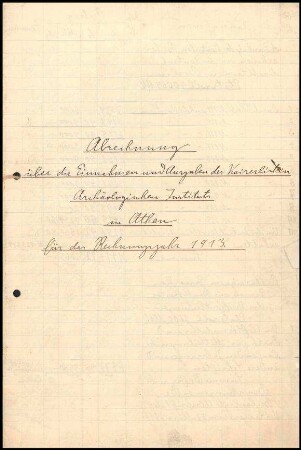 Abrechnung
über die Einnahmen und Ausgaben des Kaiserlichen
Archäologischen Instituts
in Athen
für das Rechnungsjahr 1913.